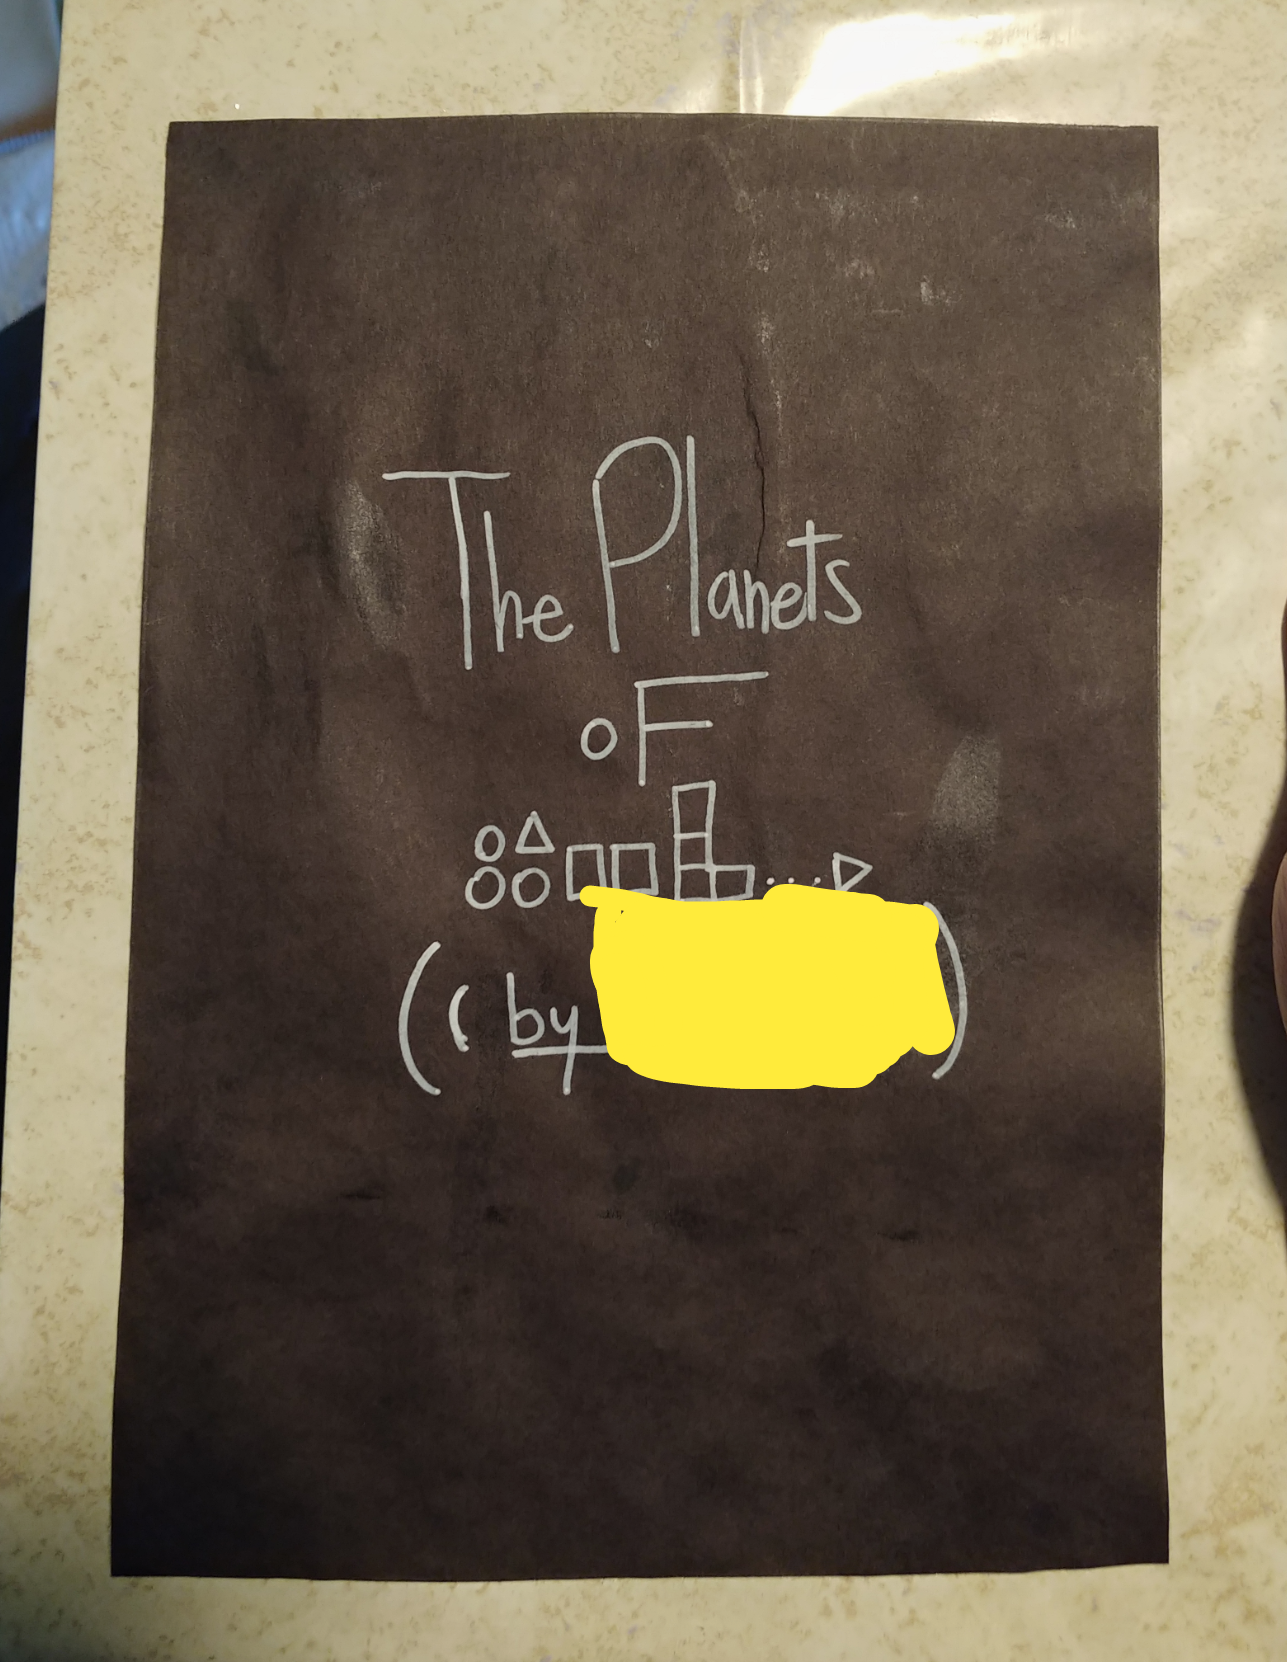 The Planets
oF
(( by )